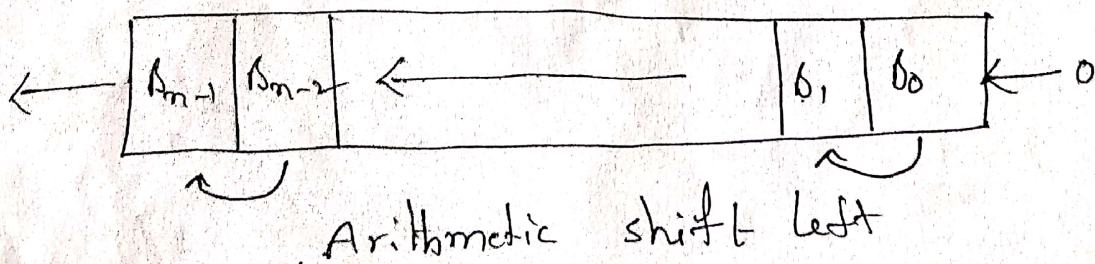 Bn-1 Bn-2 b1 b0 0
Arithmetic shift left